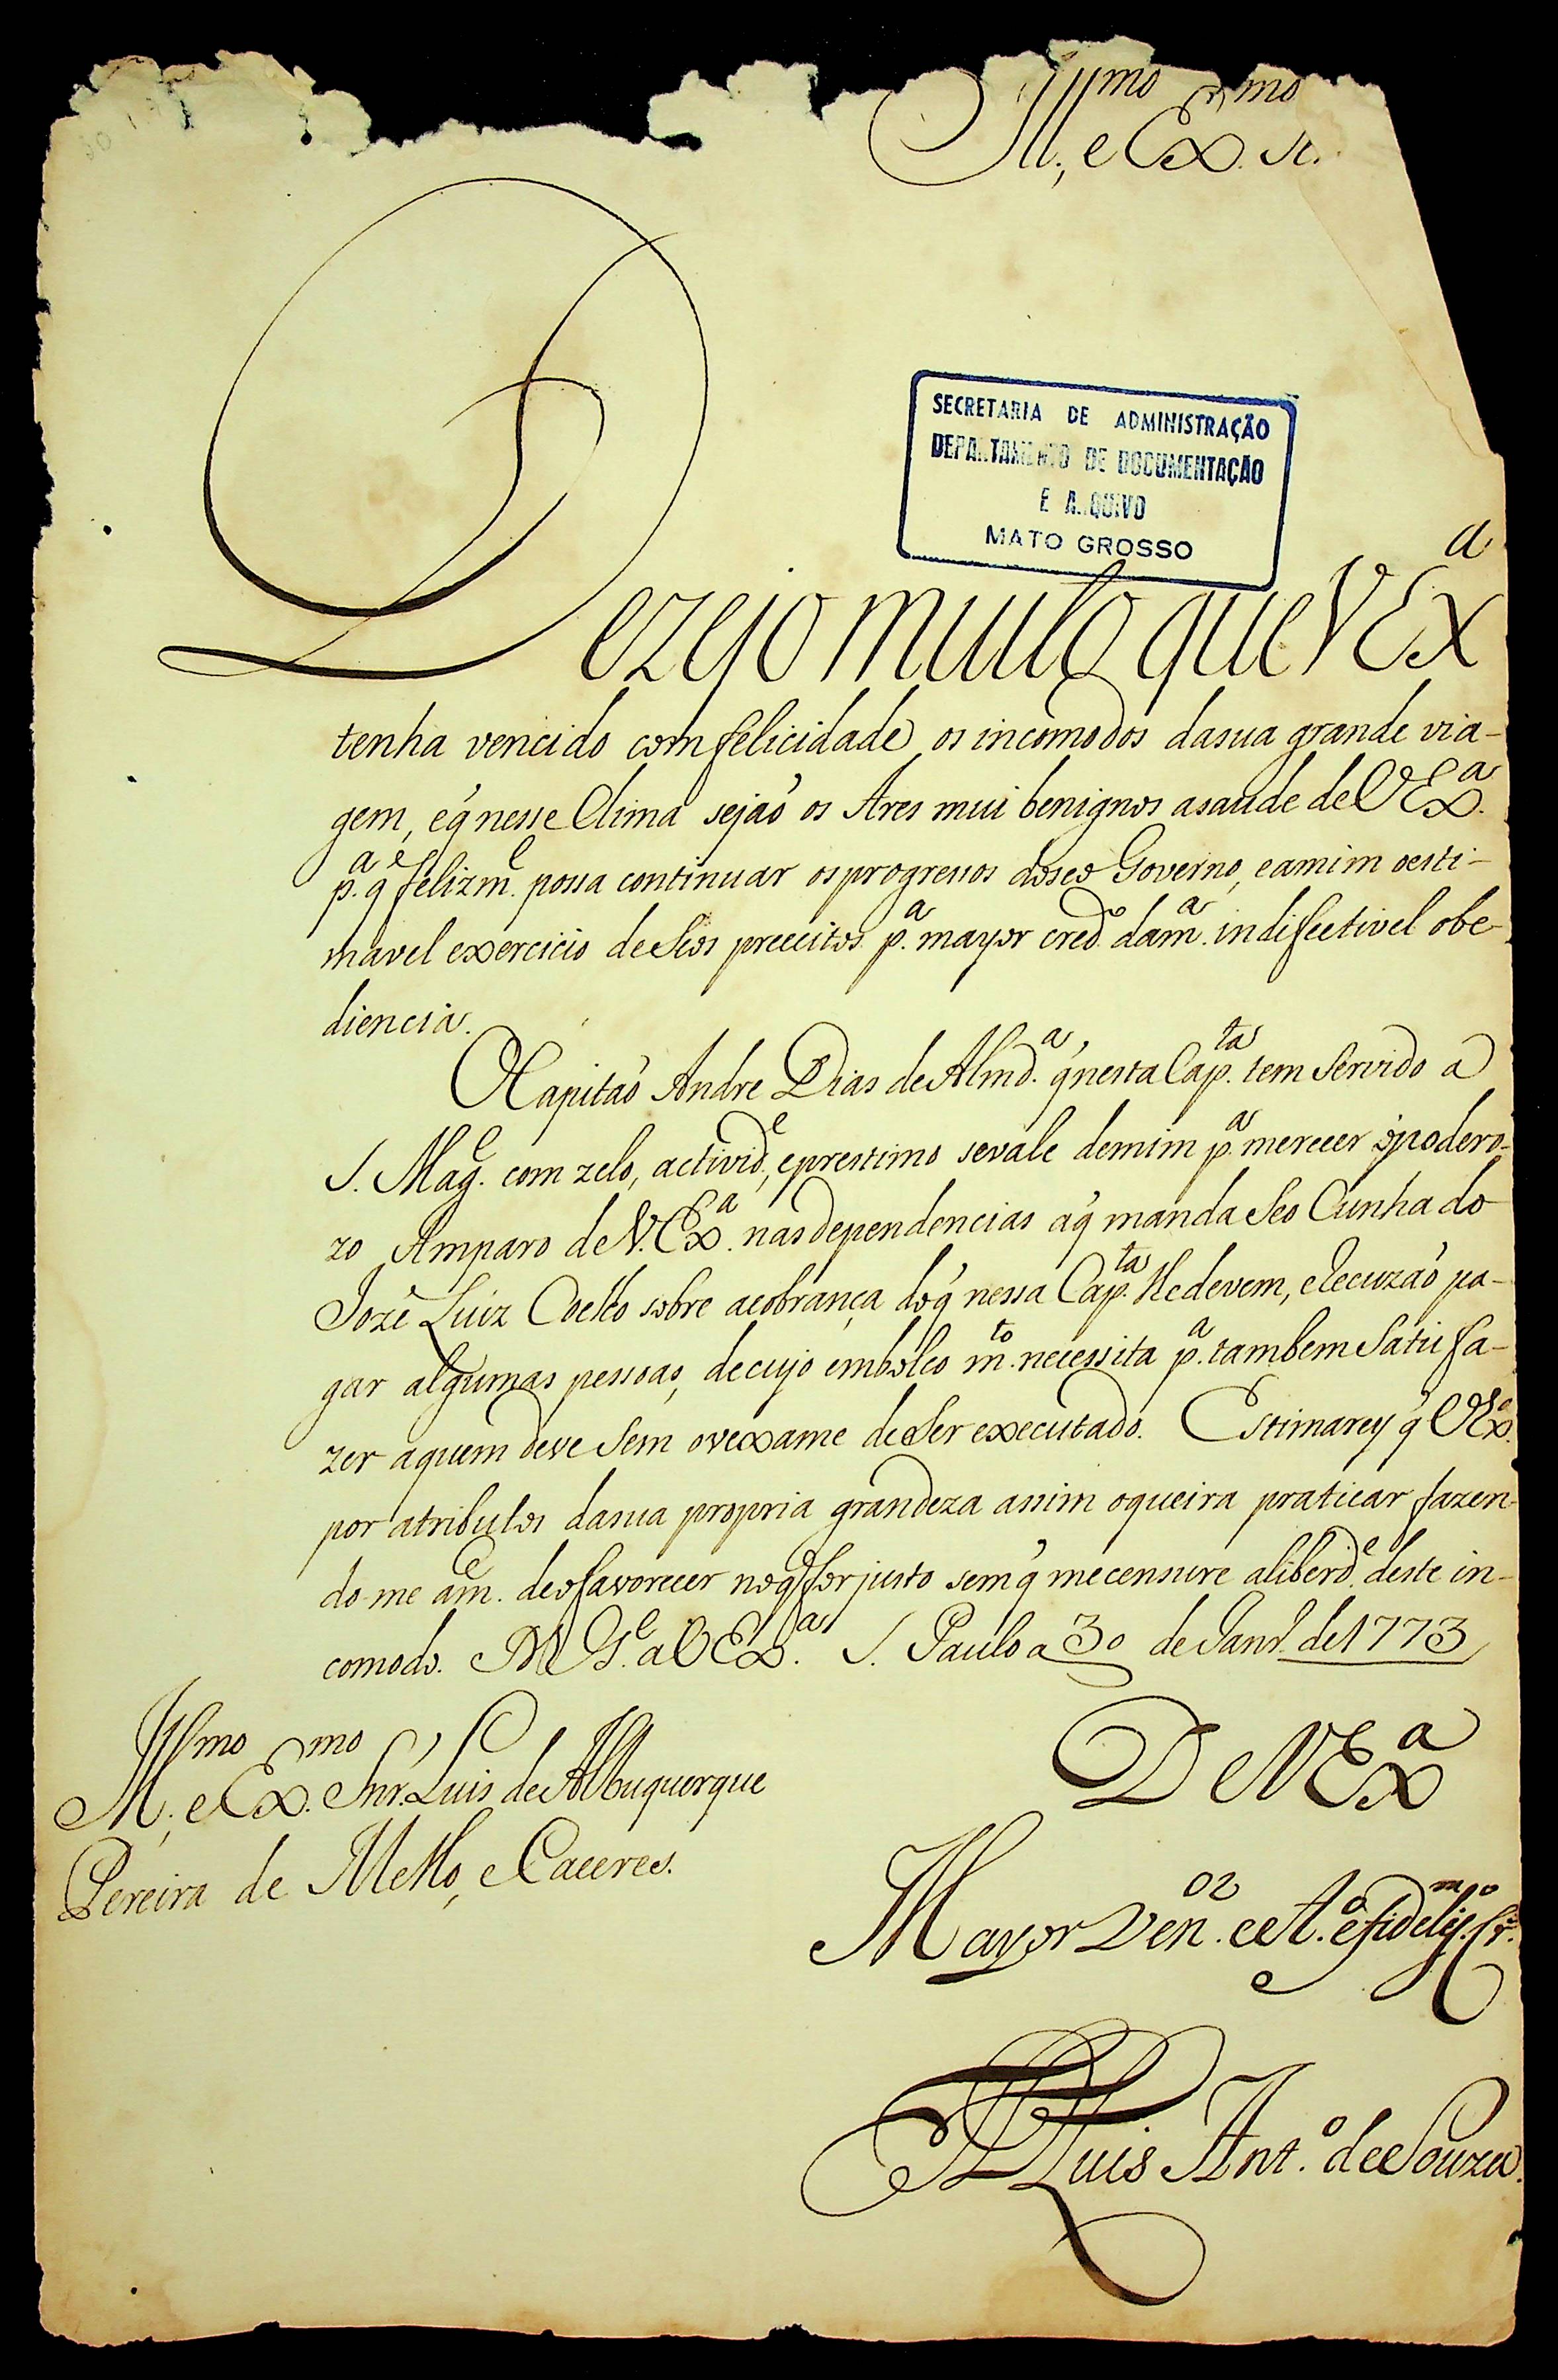 Ill.mo, e Ex.mo Sr.
SECRETARIA DE ADMINISTRAÇÃO
DEPARTAMENTO DE DOCUMENTAÇÃO
E ARQUIVO
MATO GROSSO
Dezejo muito que V Ex.a
tenha vencido com felicidade os incomodos dasua grande via-
gem, eq̃ nesse Clima sejaõ os Ares mui benignos asaude de V Ex.a
p.a q̃ felizm.e possa continuar osprogressos doseo Governo, eamim oesti-
mavel exercicio de Seos preceitos p.a mayor cred.o dam.a indifectivel obe-
diencia.
O Capitaõ Andre Dias de Almd.a q̃ nesta Cap.ta tem Servido a
S. Mag.e com zelo, activid.e, eprestimo sevale demim p.a merecer opodero-
zo Amparo de V. Ex.a nasdependencias aq̃ manda Seo Cunhado
Jozé Luiz Coelho sobre acobrança doq̃ nessa Cap.ta lhedevem, eRecuzaõ pa-
gar algumas pessoas, decujo embolço m.to necessita p.a tambem Satisfa-
zer aquem deve Sem ovexame deSer executado. Estimarey q̃ V Ex.a
por atributos dasua propria grandeza assim oqueira praticar fazen-
do-me am.e deofavorecer noq̃ for justo semq̃ mecensure aliberd.e deste in-
comodo. D.s G.e a V Ex.a S. Paulo a 30 de Janr.o de 1773
Ill.mo, e Ex.mo Snr. Luis de Albuquerque
Pereira de Mello, e Caceres.
De V Ex.a
Mayor Ven.or e A.o e fidelis.mo Cr.o
D. Luis Ant.o de Souza.